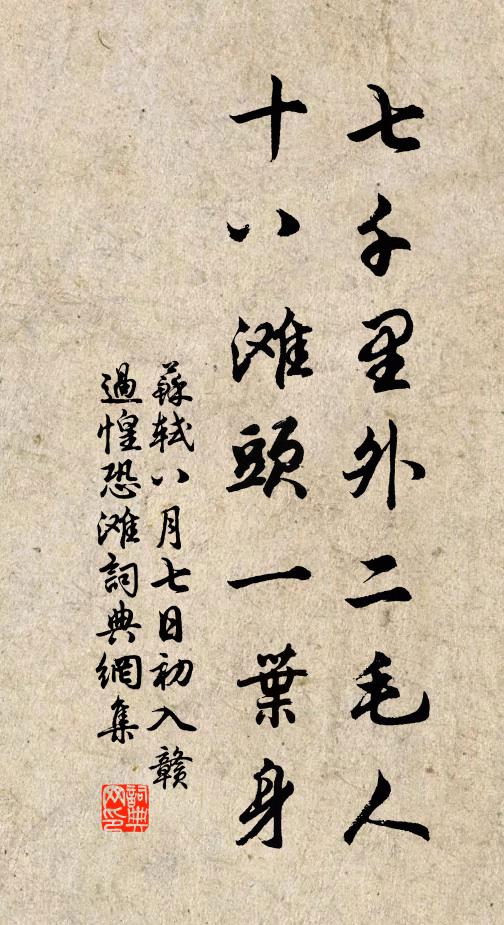 七千里外二毛人
十八滩頭一葉身
蘇軾八月七日初入贛
過惶恐滩詞典網集
詞典
网印